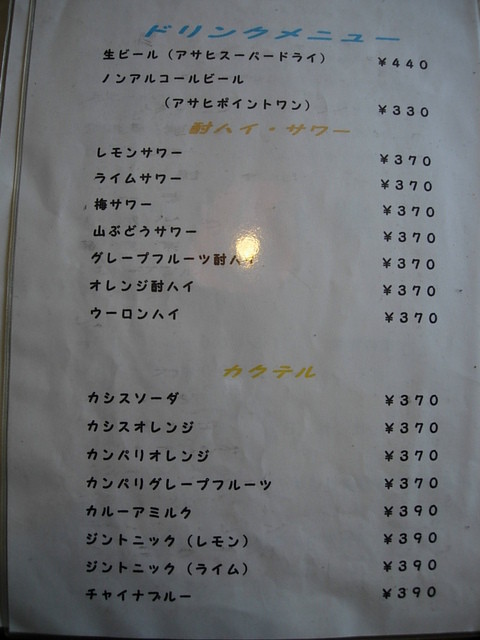 ドリンクメニュー
生ビール（アサヒスーパードライ） ￥440
ノンアルコールビール
（アサヒポイントワン） ￥330
酎ハイ・サワー
レモンサワー ￥370
ライムサワー ￥370
梅サワー ￥370
山ぶどうサワー ￥370
グレープフルーツ酎ハイ ￥370
オレンジ酎ハイ ￥370
ウーロンハイ ￥370
カクテル
カシスソーダ ￥370
カシスオレンジ ￥370
カンパリオレンジ ￥370
カンパリグレープフルーツ ￥370
カルーアミルク ￥390
ジントニック（レモン） ￥390
ジントニック（ライム） ￥390
チャイナブルー ￥390